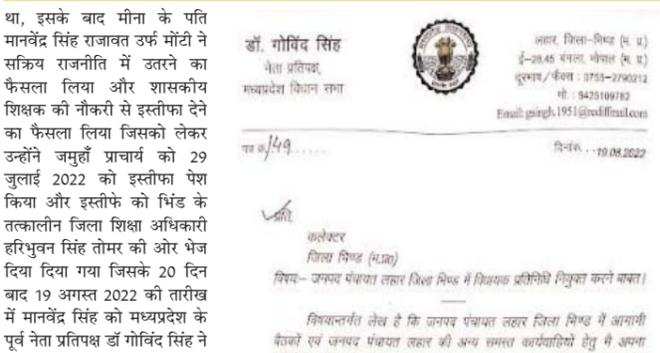 था, इसके बाद मीना के पति
मानवेंद्र सिंह राजावत उर्फ मोंटी ने
सक्रिय राजनीति में उतरने का
फैसला लिया और शासकीय
शिक्षक की नौकरी से इस्तीफा देने
का फैसला लिया जिसको लेकर
उन्होंने जमुहाँ प्राचार्य को 29
जुलाई 2022 को इस्तीफा पेश
किया और इस्तीफे को भिंड के
तत्कालीन जिला शिक्षा अधिकारी
हरिभुवन सिंह तोमर की ओर भेज
दिया दिया गया जिसके 20 दिन
बाद 19 अगस्त 2022 की तारीख
में मानवेंद्र सिंह को मध्यप्रदेश के
पूर्व नेता प्रतिपक्ष डॉ गोविंद सिंह ने
डॉ. गोविन्द सिंह
नेता प्रतिपक्ष,
मध्यप्रदेश विधान सभा
लहार, जिला-भिण्ड (म. प्र.)
ई-28,45 बंगला, भोपाल (म. प्र.)
दूरभाष / फैक्स : 0755-2790212
मो. : 9425109782
Email: gsingh.1951@rediffmail.com
पत्र क्र./149
दिनांक...19.08.2022
प्रति,
कलेक्टर
जिला भिण्ड (म.प्र.)
विषयः- जनपद पंचायत लहार जिला भिण्ड में विधायक प्रतिनिधि नियुक्त करने बाबत।
विषयान्तर्गत लेख है कि जनपद पंचायत लहार जिला भिण्ड में आगामी
बैठकों एवं जनपद पंचायत लहार की अन्य समस्त कार्यवाहियों हेतु मै अपना